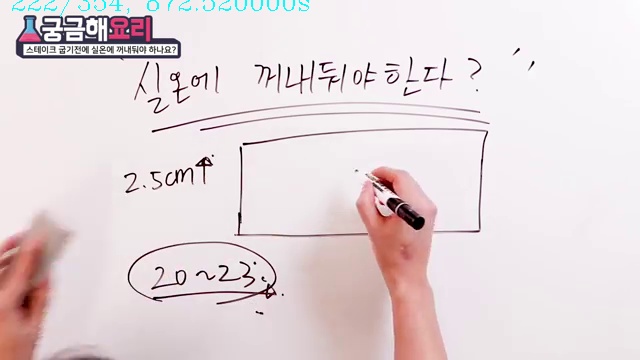 222/354, 872.520000s
궁금해요리
스테이크 굽기전에 실온에 꺼내둬야 하나요?
실온에 꺼내둬야한다?
2.5cm↑
20~23